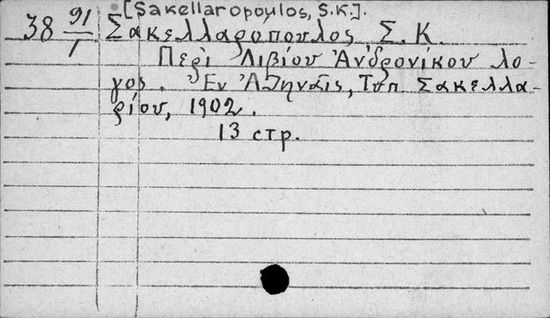 [Sakellaropoulos, S.K.].
38 91/1 Σακελλαροπουλος Σ. Κ.
Περὶ Λιβίου Ἀνδρονίκου λο-
γος. Ἐν Ἀθηναῖς, Τυπ. Σακελλα-
ρίου, 1902.
13 стр.